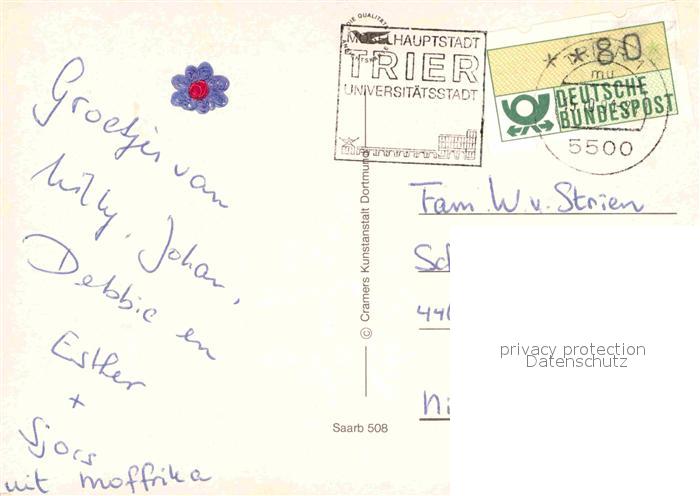 Groetjes van
Milly, Johan,
Debbie en
Esther
+
Sjors
uit moffrika
MOSELHAUPTSTADT
TRIER
UNIVERSITÄTSSTADT
80
DEUTSCHE
BUNDESPOST
5500
© Cramers Kunstanstalt Dortmund
Saarb 508
Fam. W. v. Strien
Sc
44
Ni
privacy protection
Datenschutz